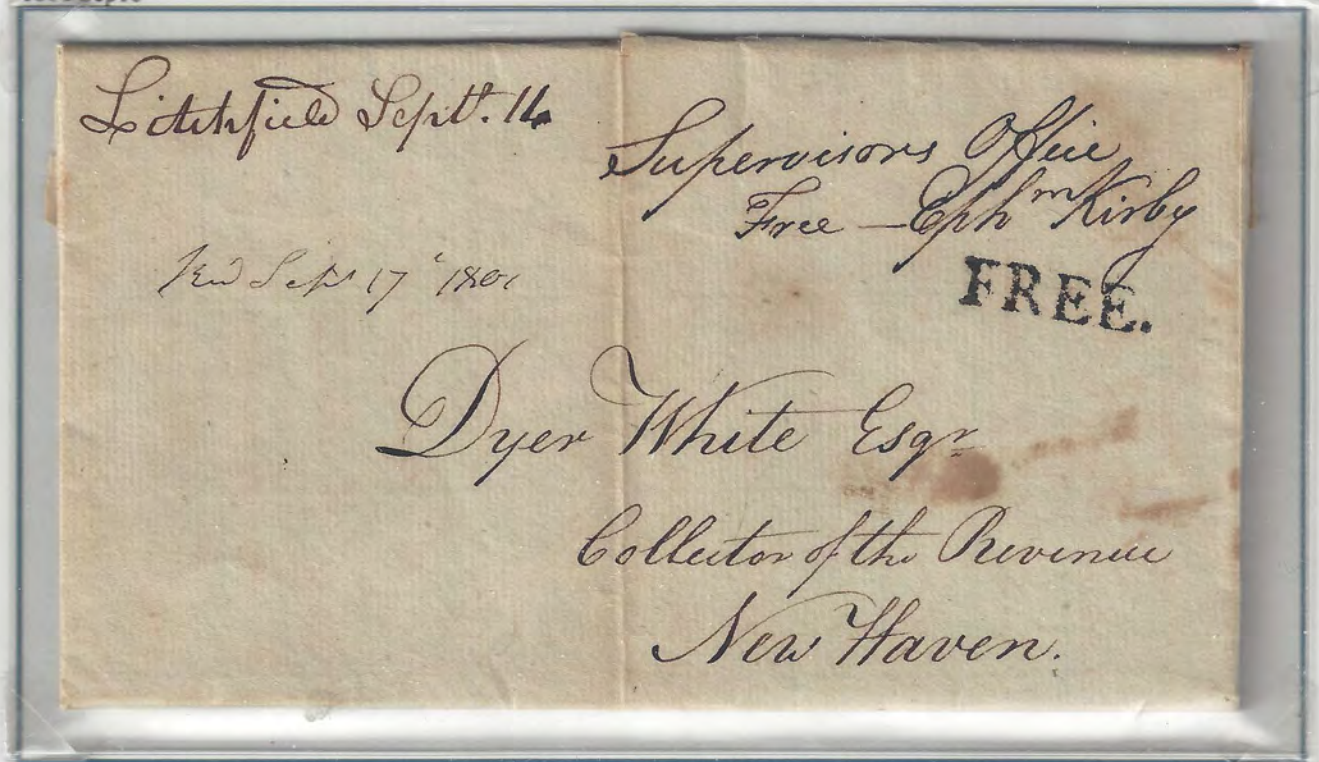 Litchfield Septr. 16
Supervisors Office
Free — Ephm Kirby
FREE.
Recd Sept 17 1801
Dyer White Esqr
Collector of the Revenue
New Haven.